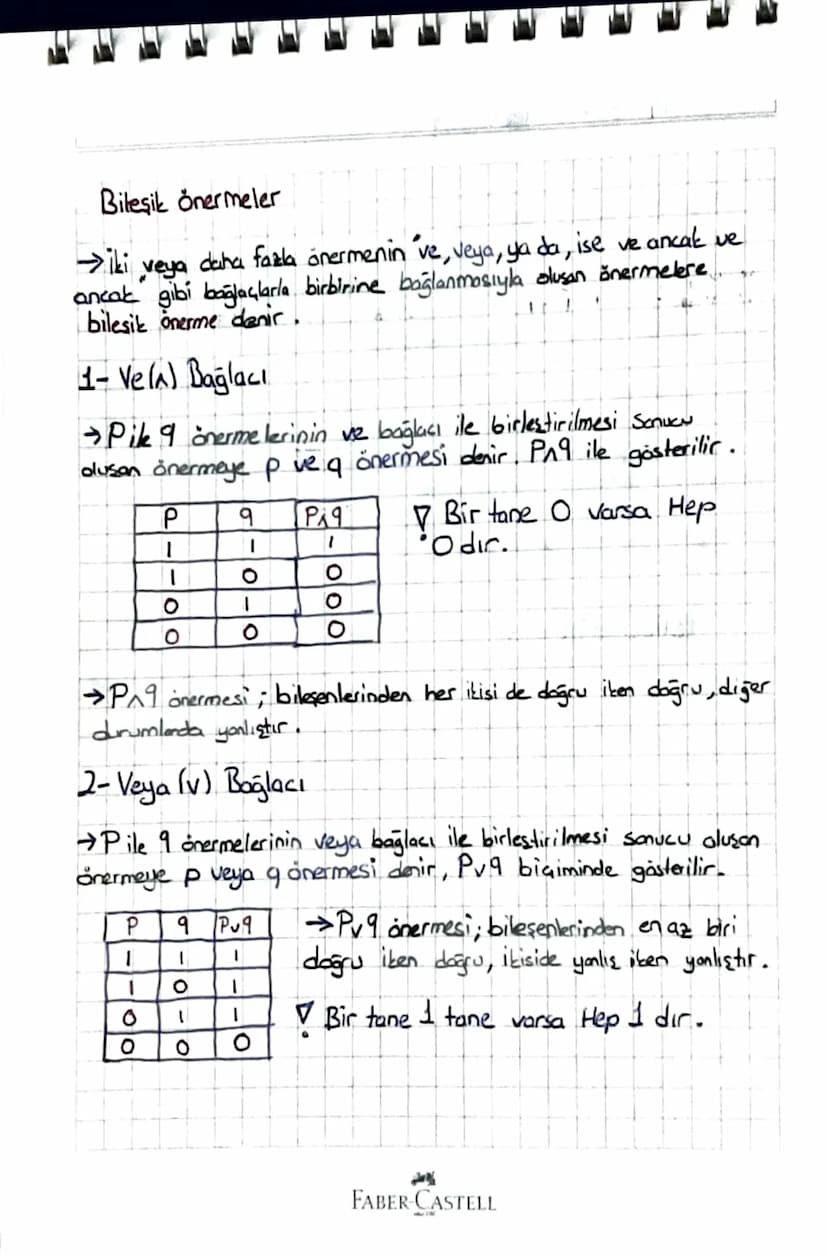 Bileşik Önermeler
→ İki veya daha fazla önermenin "ve, veya, ya da, ise ve ancak ve
ancak" gibi bağlaçlarla birbirine bağlanmasıyla oluşan önermelere
bileşik önerme denir.
1- Ve(∧) Bağlacı
→ P ile q önermelerinin ve bağlacı ile birleştirilmesi sonucu
oluşan önermeye p ve q önermesi denir. P∧q ile gösterilir.
P q P∧q
1 1 1
1 0 0
0 1 0
0 0 0
! Bir tane 0 varsa Hep
0 dır.
→ P∧q önermesi; bileşenlerinden her ikisi de doğru iken doğru, diğer
durumlarda yanlıştır.
2- Veya (v) Bağlacı
→ P ile q önermelerinin veya bağlacı ile birleştirilmesi sonucu oluşan
önermeye p veya q önermesi denir, Pvq biçiminde gösterilir.
P q Pvq
1 1 1
1 0 1
0 1 1
0 0 0
→ Pvq önermesi; bileşenlerinden en az biri
doğru iken doğru, ikiside yanlış iken yanlıştır.
! Bir tane 1 tane varsa Hep 1 dır.
FABER-CASTELL